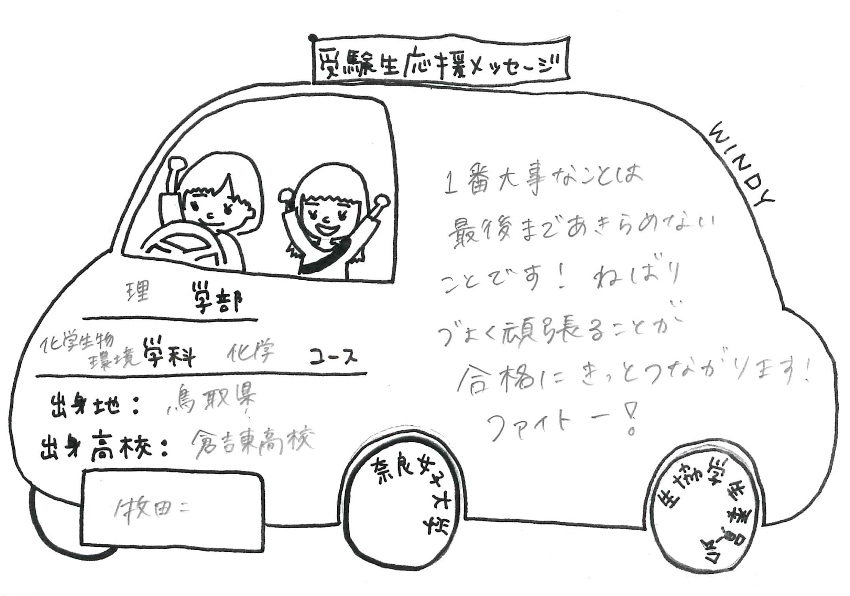 受験生応援メッセージ
WINDY
1番大事なことは
最後まであきらめない
ことです！ ねばり
づよく頑張ることが
合格にきっとつながります！
ファイトー！
理 学部
化学生物
環境 学科 化学 コース
出身地：鳥取県
出身高校：倉吉東高校
奈良女子大学